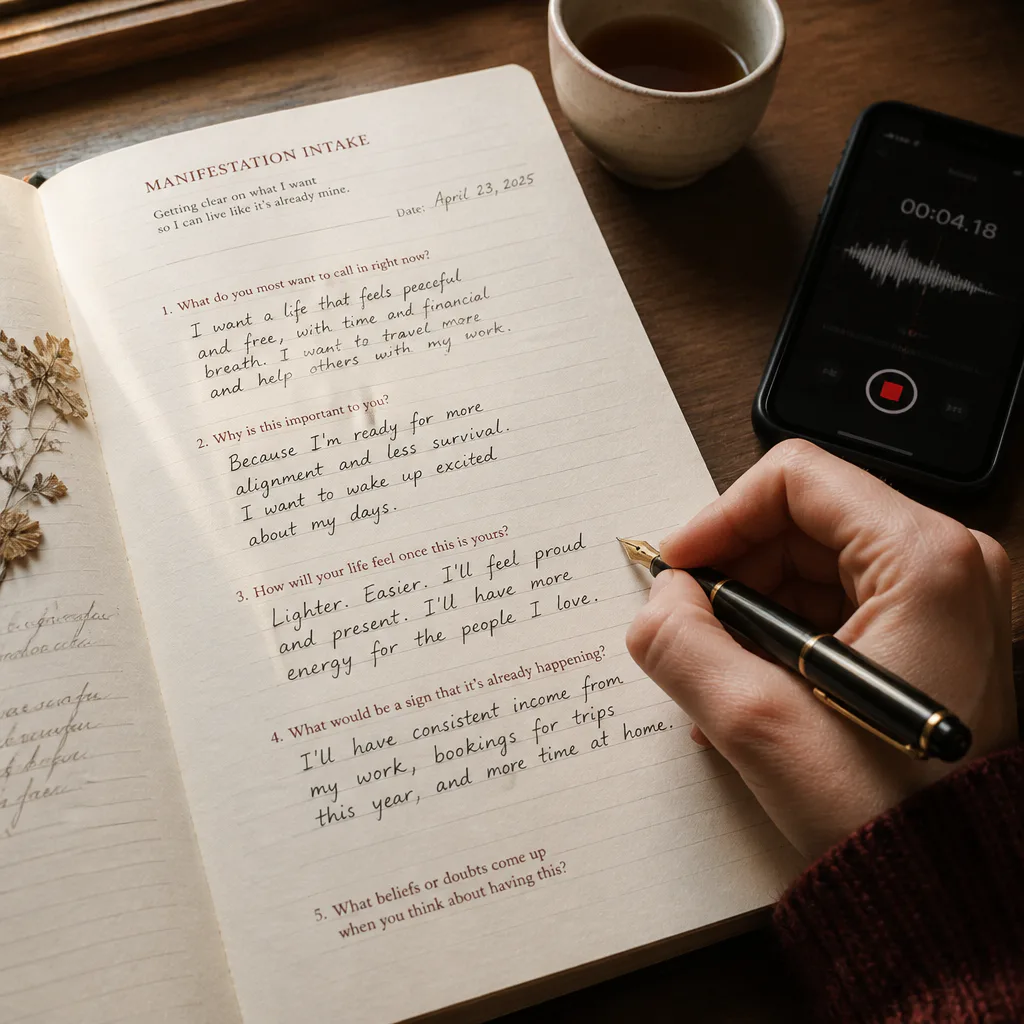 MANIFESTATION INTAKE
Getting clear on what I want
so I can live like it's already mine.
Date: April 23, 2025
1. What do you most want to call in right now?
I want a life that feels peaceful
and free, with time and financial
breath. I want to travel more
and help others with my work.
2. Why is this important to you?
Because I'm ready for more
alignment and less survival.
I want to wake up excited
about my days.
3. How will your life feel once this is yours?
Lighter. Easier. I'll feel proud
and present. I'll have more
energy for the people I love.
4. What would be a sign that it's already happening?
I'll have consistent income from
my work, bookings for trips
this year, and more time at home.
5. What beliefs or doubts come up
when you think about having this?
00:04.18